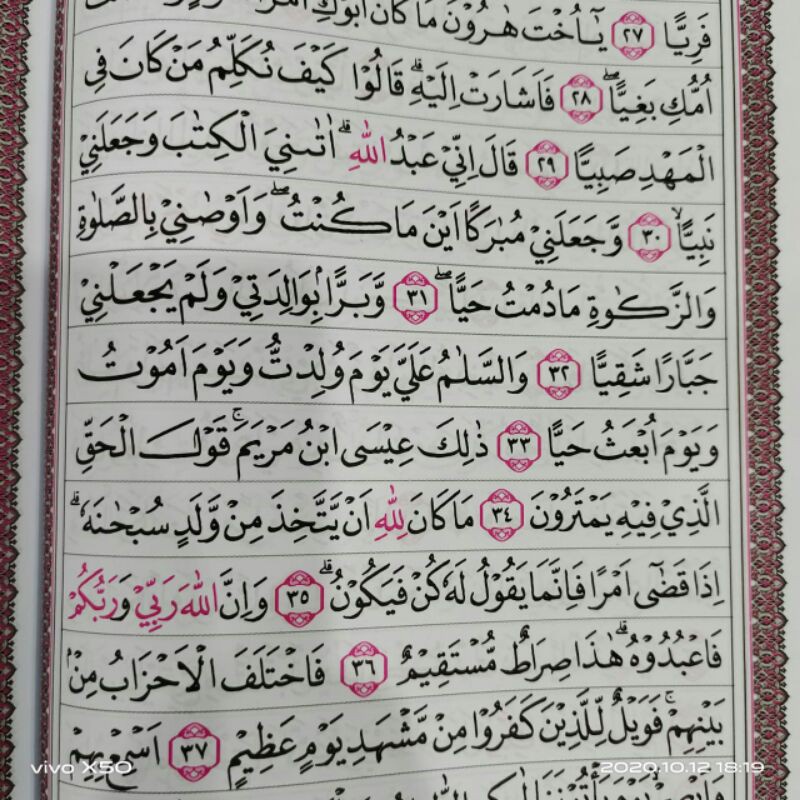 فَرِيًّا ٢٧ يٰٓاُخْتَ هٰرُوْنَ مَا كَانَ اَبُوْكِ
اُمُّكِ بَغِيًّا ۖ ٢٨ فَاَشَارَتْ اِلَيْهِ ۗ قَالُوْا كَيْفَ نُكَلِّمُ مَنْ كَانَ فِى
الْمَهْدِ صَبِيًّا ٢٩ قَالَ اِنِّيْ عَبْدُ اللّٰهِ ۗ اٰتٰىنِيَ الْكِتٰبَ وَجَعَلَنِيْ
نَبِيًّا ۙ ٣٠ وَّجَعَلَنِيْ مُبٰرَكًا اَيْنَ مَا كُنْتُ ۖ وَاَوْصٰنِيْ بِالصَّلٰوةِ
وَالزَّكٰوةِ مَا دُمْتُ حَيًّا ۖ ٣١ وَّبَرًّا ۢ بِوَالِدَتِيْ وَلَمْ يَجْعَلْنِيْ
جَبَّارًا شَقِيًّا ٣٢ وَالسَّلٰمُ عَلَيَّ يَوْمَ وُلِدْتُّ وَيَوْمَ اَمُوْتُ
وَيَوْمَ اُبْعَثُ حَيًّا ٣٣ ذٰلِكَ عِيْسَى ابْنُ مَرْيَمَ ۚ قَوْلَ الْحَقِّ
الَّذِيْ فِيْهِ يَمْتَرُوْنَ ٣٤ مَا كَانَ لِلّٰهِ اَنْ يَّتَّخِذَ مِنْ وَّلَدٍ سُبْحٰنَهٗ ۗ
اِذَا قَضٰٓى اَمْرًا فَاِنَّمَا يَقُوْلُ لَهٗ كُنْ فَيَكُوْنُ ۗ ٣٥ وَاِنَّ اللّٰهَ رَبِّيْ وَرَبُّكُمْ
فَاعْبُدُوْهُ ۗ هٰذَا صِرَاطٌ مُّسْتَقِيْمٌ ٣٦ فَاخْتَلَفَ الْاَحْزَابُ مِنْۢ
بَيْنِهِمْ ۚ فَوَيْلٌ لِّلَّذِيْنَ كَفَرُوْا مِنْ مَّشْهَدِ يَوْمٍ عَظِيْمٍ ٣٧ اَسْمِعْ بِهِمْ
vivo X50
2020.10.12 18:19